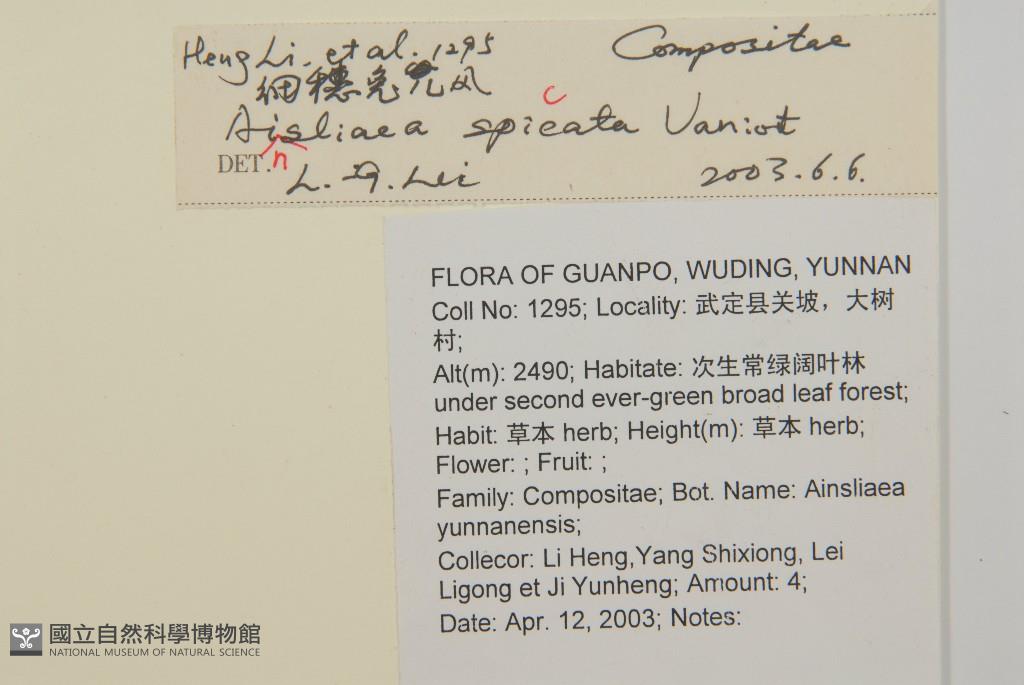 Heng Li. et al. 1295
Compositae
細穗兔儿风
Aisliaea spicata Vaniot
n
c
DET. L. G. Lei
2003.6.6.
FLORA OF GUANPO, WUDING, YUNNAN
Coll No: 1295; Locality: 武定县关坡，大树
村;
Alt(m): 2490; Habitate: 次生常绿阔叶林
under second ever-green broad leaf forest;
Habit: 草本 herb; Height(m): 草本 herb;
Flower: ; Fruit: ;
Family: Compositae; Bot. Name: Ainsliaea
yunnanensis;
Collecor: Li Heng,Yang Shixiong, Lei
Ligong et Ji Yunheng; Amount: 4;
Date: Apr. 12, 2003; Notes:
國立自然科學博物館
NATIONAL MUSEUM OF NATURAL SCIENCE